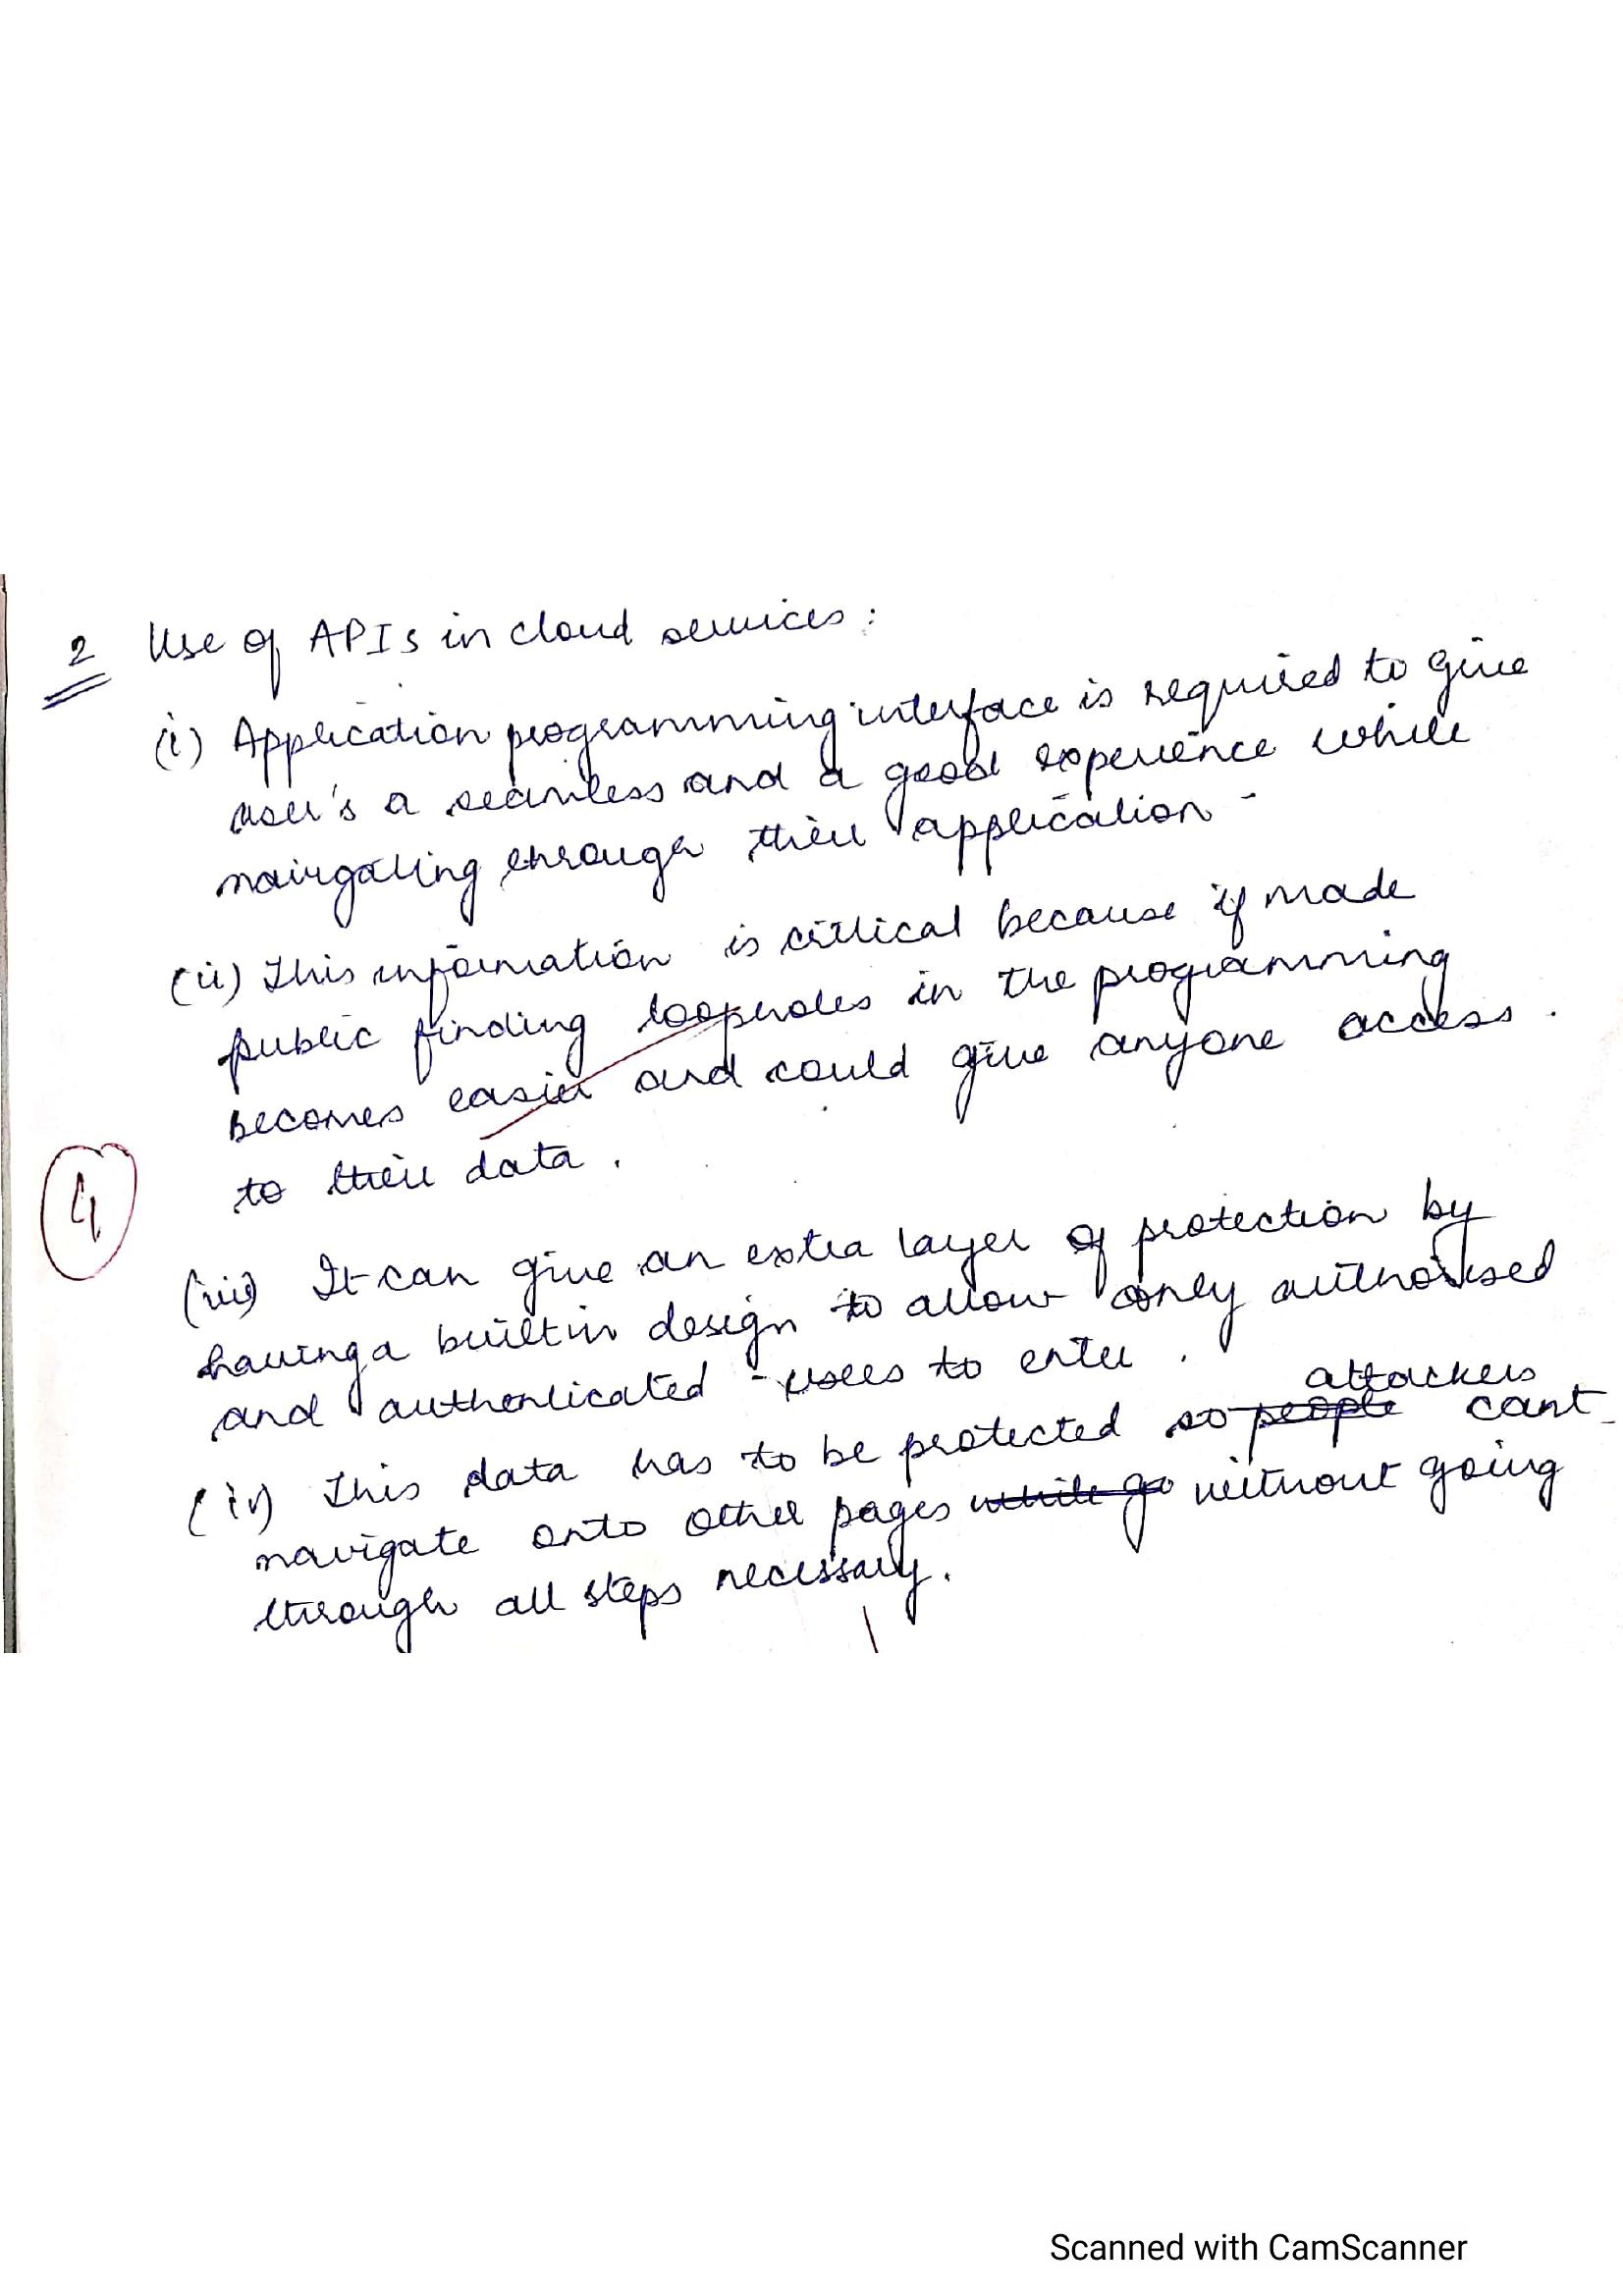 2 Use of APIs in cloud services:
(i) Application programming interface is required to give
user's a seamless and a good experience while
navigating through their application -
(ii) This information is critical because if made
public finding loopholes in the programming
becomes easier and could give anyone access
to their data.
4
(iii) It can give an extra layer of protection by
having a built in design to allow only authorised
and authenticated users to enter.
attackers
(iv) This data has to be protected so people cant
navigate onto other pages while go without going
through all steps necessary.
Scanned with CamScanner